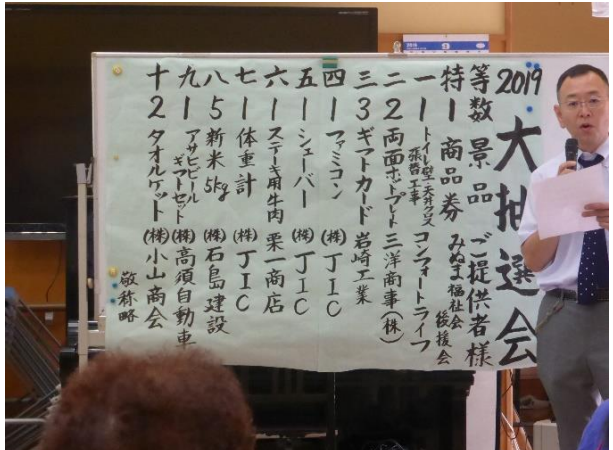 2019 大抽選会
等 数 景品 ご提供者様
特 1 商品券 みぬま福祉会後援会
一 1 トイレ壁・天井クロス張替工事 コンフォートライフ
二 2 両面ホットプレート 三洋商事(株)
三 3 ギフトカード 岩崎工業
四 1 ファミコン (株)JIC
五 1 シェーバー (株)JIC
六 1 ステーキ用牛肉 栗一商店
七 1 体重計 (株)JIC
八 5 新米5kg (株)石島建設
九 1 アサヒビールギフトセット (株)高須自動車
十 2 タオルケット (株)小山商会
敬称略
9